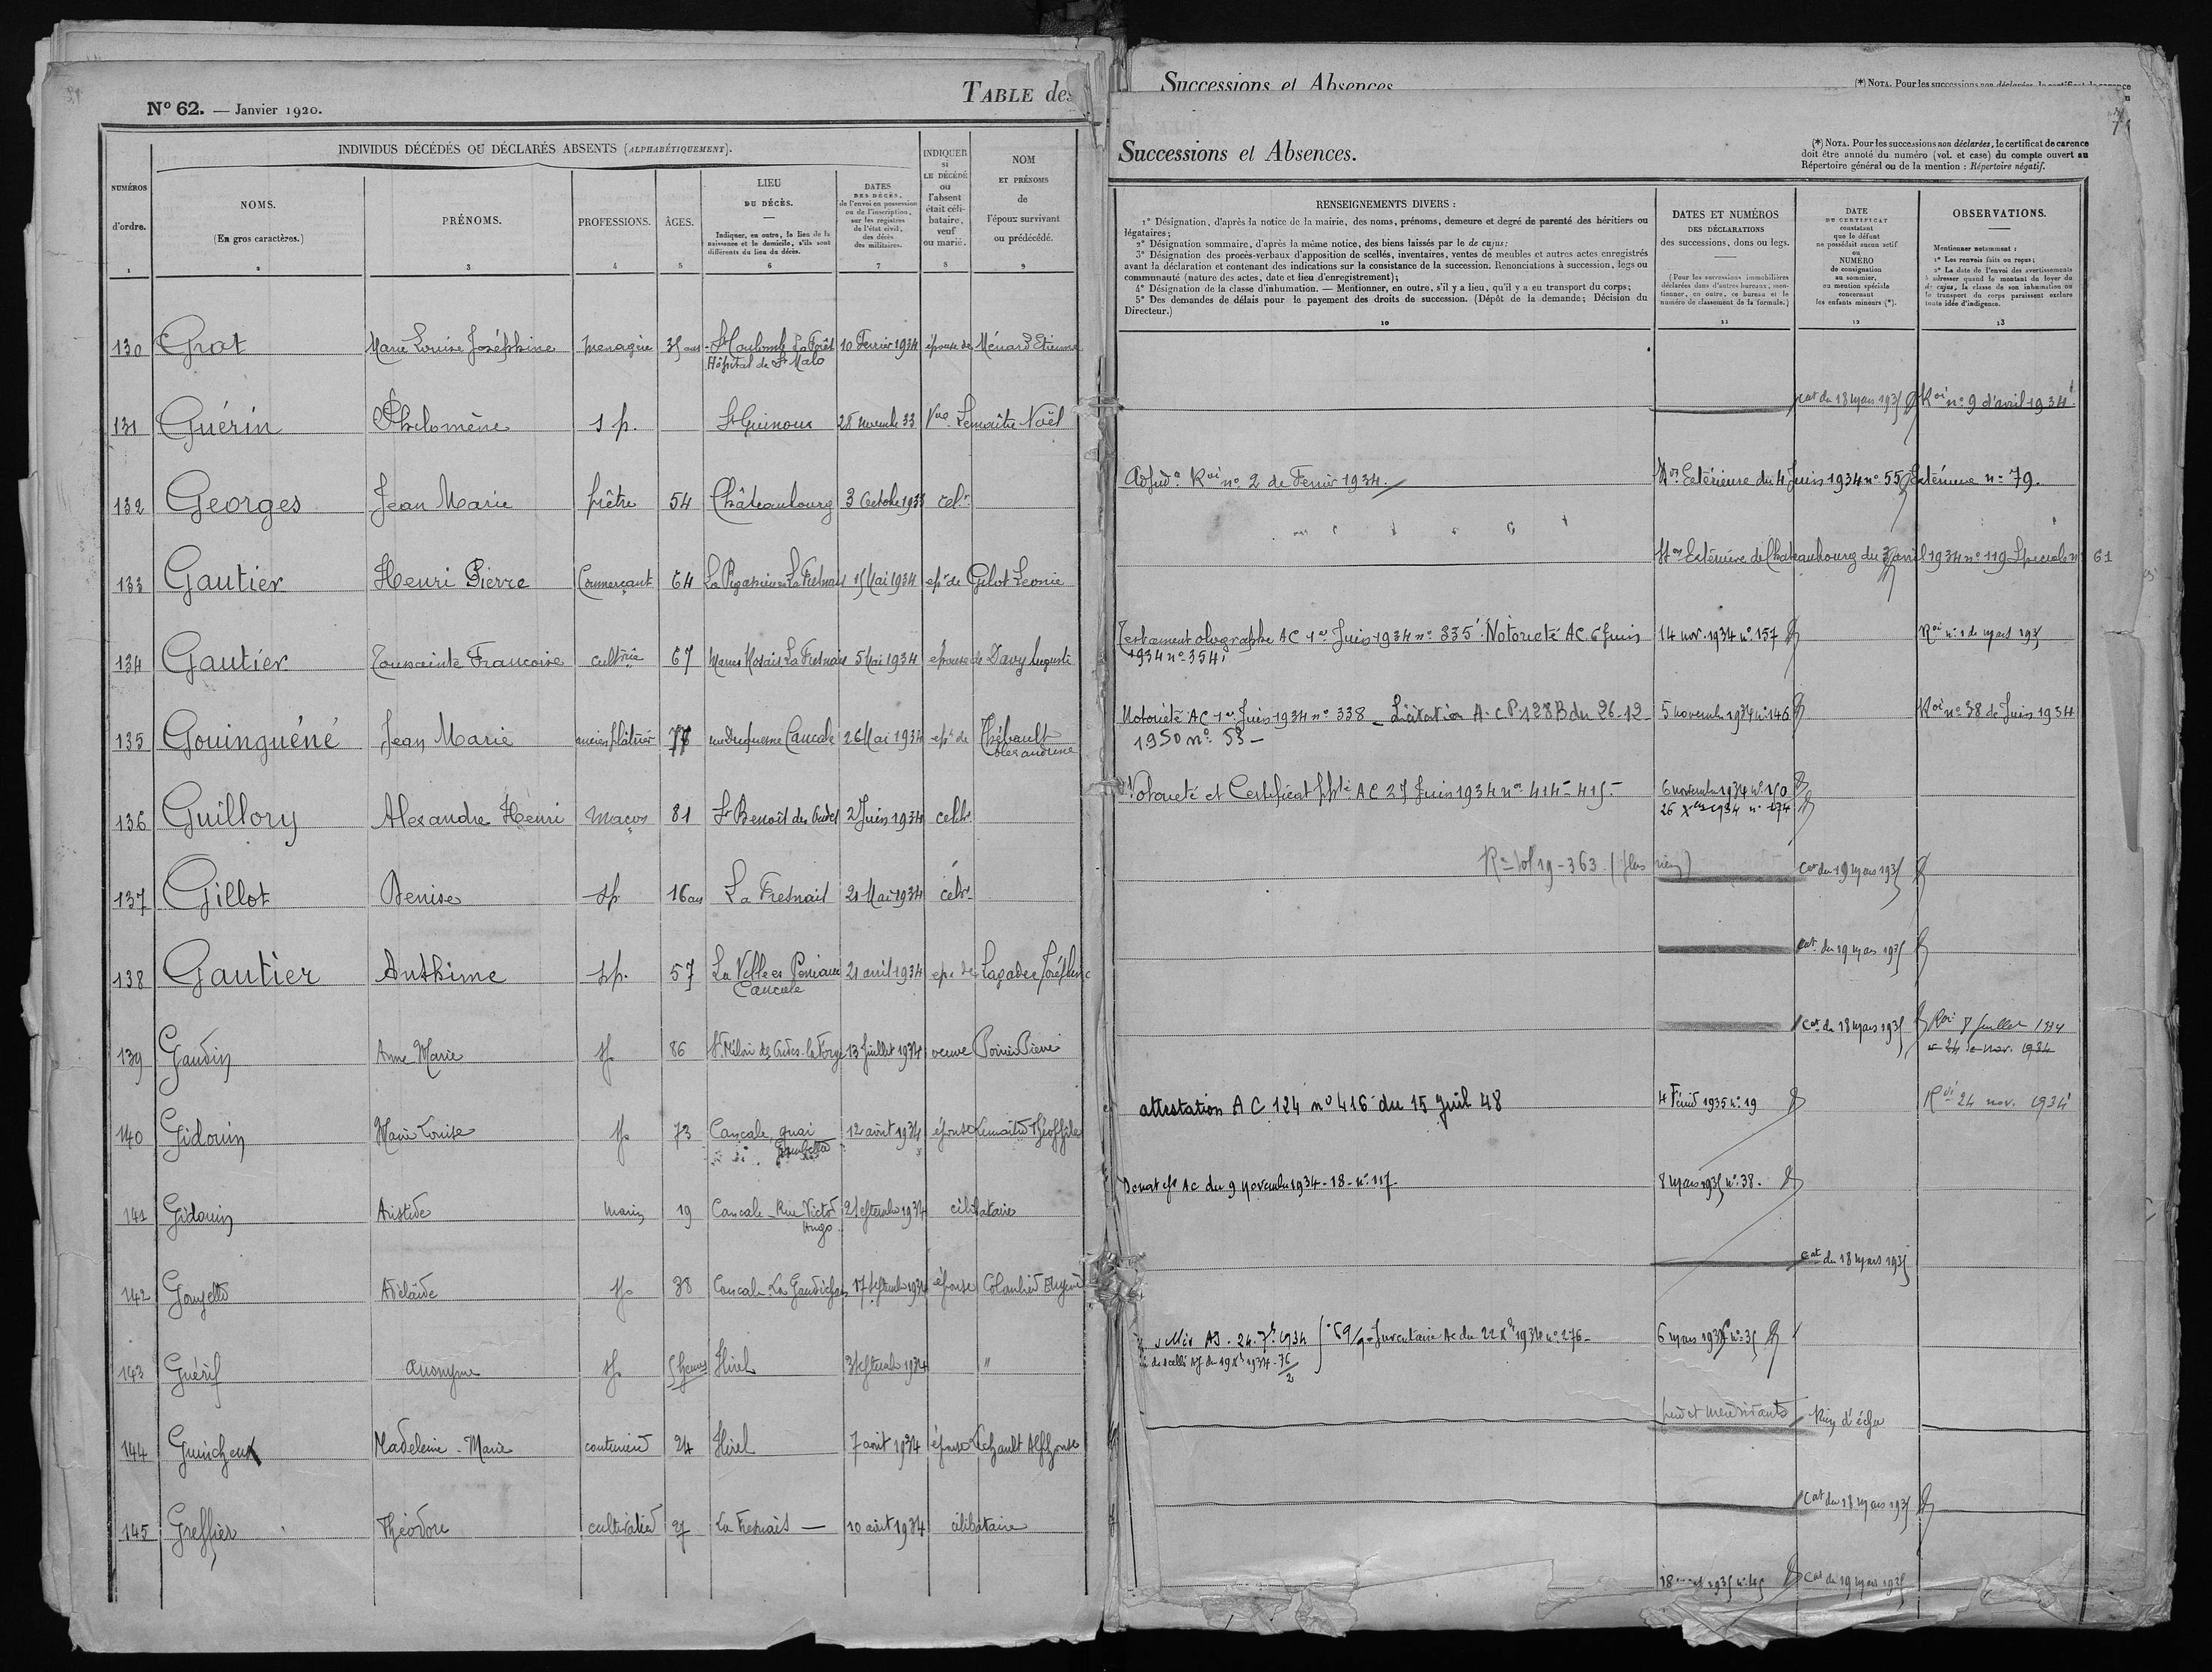 Nº 62. — Janvier 1920.
TABLE des
Successions et Absences
(*) NOTA. Pour les successions non déclarées, le certificat de carence
Successions et Absences.
(*) NOTA. Pour les successions non déclarées, le certificat de carence
doit être annoté du numéro (vol. et case) du compte ouvert au
Répertoire général ou de la mention : Répertoire négatif.
INDIVIDUS DÉCÉDÉS OU DÉCLARÉS ABSENTS (ALPHABÉTIQUEMENT).
NUMÉROS
d'ordre.
1
NOMS.
(En gros caractères.)
2
PRÉNOMS.
3
PROFESSIONS.
4
ÂGES.
5
LIEU
DU DÉCÈS.
Indiquer, en outre, le lieu de la
naissance et le domicile, s'ils sont
différents du lieu du décès.
6
DATES
DES DÉCÈS,
de l'envoi en possession
ou de l'inscription,
sur les registres
de l'état civil,
des décès
des militaires.
7
INDIQUER
si
LE DÉCÉDÉ
ou
l'absent
était céli-
bataire,
veuf
ou marié.
8
NOM
ET PRÉNOMS
de
l'époux survivant
ou prédécédé.
9
RENSEIGNEMENTS DIVERS :
1° Désignation, d'après la notice de la mairie, des noms, prénoms, demeure et degré de parenté des héritiers ou
légataires;
2° Désignation sommaire, d'après la même notice, des biens laissés par le de cujus;
3° Désignation des procès-verbaux d'apposition de scellés, inventaires, ventes de meubles et autres actes enregistrés
avant la déclaration et contenant des indications sur la consistance de la succession. Renonciations à succession, legs ou
communauté (nature des actes, date et lieu d'enregistrement);
4° Désignation de la classe d'inhumation. — Mentionner, en outre, s'il y a lieu, qu'il y a eu transport du corps;
5° Des demandes de délais pour le payement des droits de succession. (Dépôt de la demande; Décision du
Directeur.)
10
DATES ET NUMÉROS
DES DÉCLARATIONS
des successions, dons ou legs.
(Pour les successions immobilières
déclarées dans d'autres bureaux, men-
tionner, en outre, ce bureau et le
numéro de classement de la formule.)
11
DATE
DU CERTIFICAT
constatant
que le défunt
ne possédait aucun actif
ou
NUMÉRO
de consignation
au sommier,
ou mention spéciale
concernant
les enfants mineurs (*).
12
OBSERVATIONS.
Mentionner notamment :
1° Les renvois faits ou reçus;
2° La date de l'envoi des avertissements
à adresser quand le montant du loyer du
de cujus, la classe de son inhumation ou
le transport du corps paraissent exclure
toute idée d'indigence.
13
130 Grat Marie Louise Joséphine menagère 35 ans St Coulomb La Forêt 10 Fevrier 1934 épouse de Ménard Etienne
Hôpital de St Malo
cat du 18 mars 1935 Roi nº 9 d'avril 1934
131 Guérin Philomène s p. St Guinoux 28 novembre 33 Vve Lemaître Noël
Adjud on Roi nº 2 de Fevrier 1934. Extérieure du 4 Juin 1934 nº 55 Extérieure nº 79.
132 Georges Jean Marie prêtre 54 Châteaubourg 3 Octobre 1933 celre
Extérieure de Chateaubourg du 3 avril 1934 nº 119 Speciale nº 61
133 Gautier Henri Pierre Commerçant 64 La Fresnais 15 Mai 1934 epx de Gilot Leonie
Testament olographe AC 1er Juin 1934 nº 335 Notorieté AC 6 Juin 14 nov. 1934 nº 157 Roi nº 1 de mars 1935
1934 nº 354
134 Gautier Toussainte Francoise cultrice 67 La Fresnais 5 Mai 1934 epouse de Davy Auguste
Notoriété AC 1er Juin 1934 nº 338 _ Licitation A.C.P. 128B du 26-12- 5 novembre 1934 nº 146 Roi nº 38 de Juin 1934
1950 nº 53 —
135 Gouinguéné Jean Marie ancien plâtrier 77 rue Duquesne Cancale 26 Mai 1934 epx de Thébault
Alexandrine
Notorieté et Certificat ppté AC 27 Juin 1934 nos 414 - 415 - 6 novembre 1934 nº 150
26 Xbre 1934 nº 174
136 Guillory Alexandre Henri Maçon 81 St Benoît des Ondes 2 Juin 1934 celbre
cat du 19 mars 1935
137 Gillot Denise sp 16 ans La Fresnais 21 Mai 1934 célbre
cat. du 19 mars 1935
138 Gautier Anthime sp. 57 La Ville es 21 avril 1934 epx de Lagadec Joséphine
Cancale
cat du 18 mars 1935 Roi 8 Juillet 1934
24 de nov. 1934
139 Gaudin Anne Marie sp. 86 St Méloir des Ondes la Forge 13 Juillet 1934 veuve Poirier Pierre
attestation A C 124 nº 416 du 15 Juil 48 4 Février 1935 nº 19 Roi 24 nov. 1934
140 Gidouin Marie Louise sp. 73 Cancale, quai 12 août 1934 épouse Lemaître Théophile
Gambetta
Donat AC du 9 novembre 1934 - 18 - nº 117 8 mars 1935 nº 38.
141 Gidouin Aristide marin 19 Cancale _ Rue Victor 2 septembre 1934 célibataire
Hugo
cat du 18 mars 1935
142 Adélaïde sp. 38 Cancale 17 septembre 1934 épouse Eugène
Inventaire Ac du 22 Xbre 1934 nº 276 - 6 mars 1935 nº 35
143 Guérif anonyme sp. 5 heures Hirel 3 septembre 1934 "
144 Madeleine - Marie couturière 24 Hirel 7 août 1934 épouse Alphonse
cat du 18 mars 1935
145 Greffier Théodore cultivateur 27 La Fresnais — 10 août 1934 célibataire
18 mars 1935 nº 45 cat du 19 mars 1935